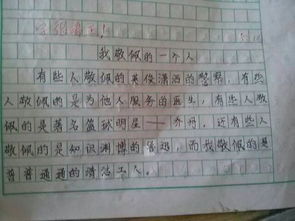 我敬佩的一个人
有些人敬佩的英俊潇洒的警察，有些
人敬佩的是为他人服务的医生，有些人敬
佩的是著名篮球明星——乔丹，还有些人
敬佩的是知识渊博的，而我敬佩的是
普普通通的清洁工人。